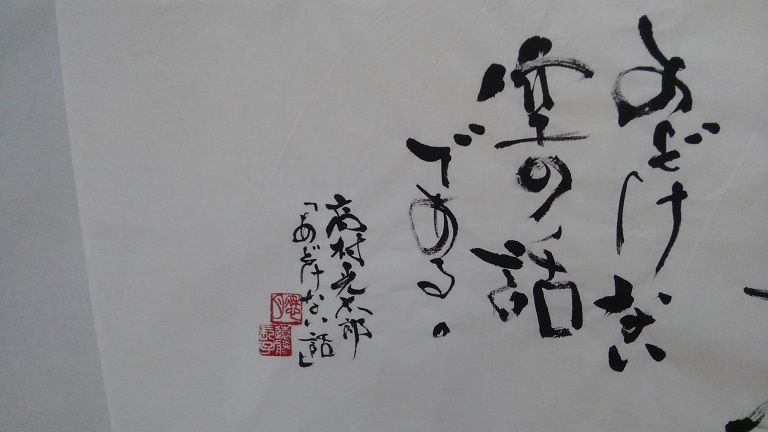 あどけない
空の話
である。
高村光太郎
「あどけない話」